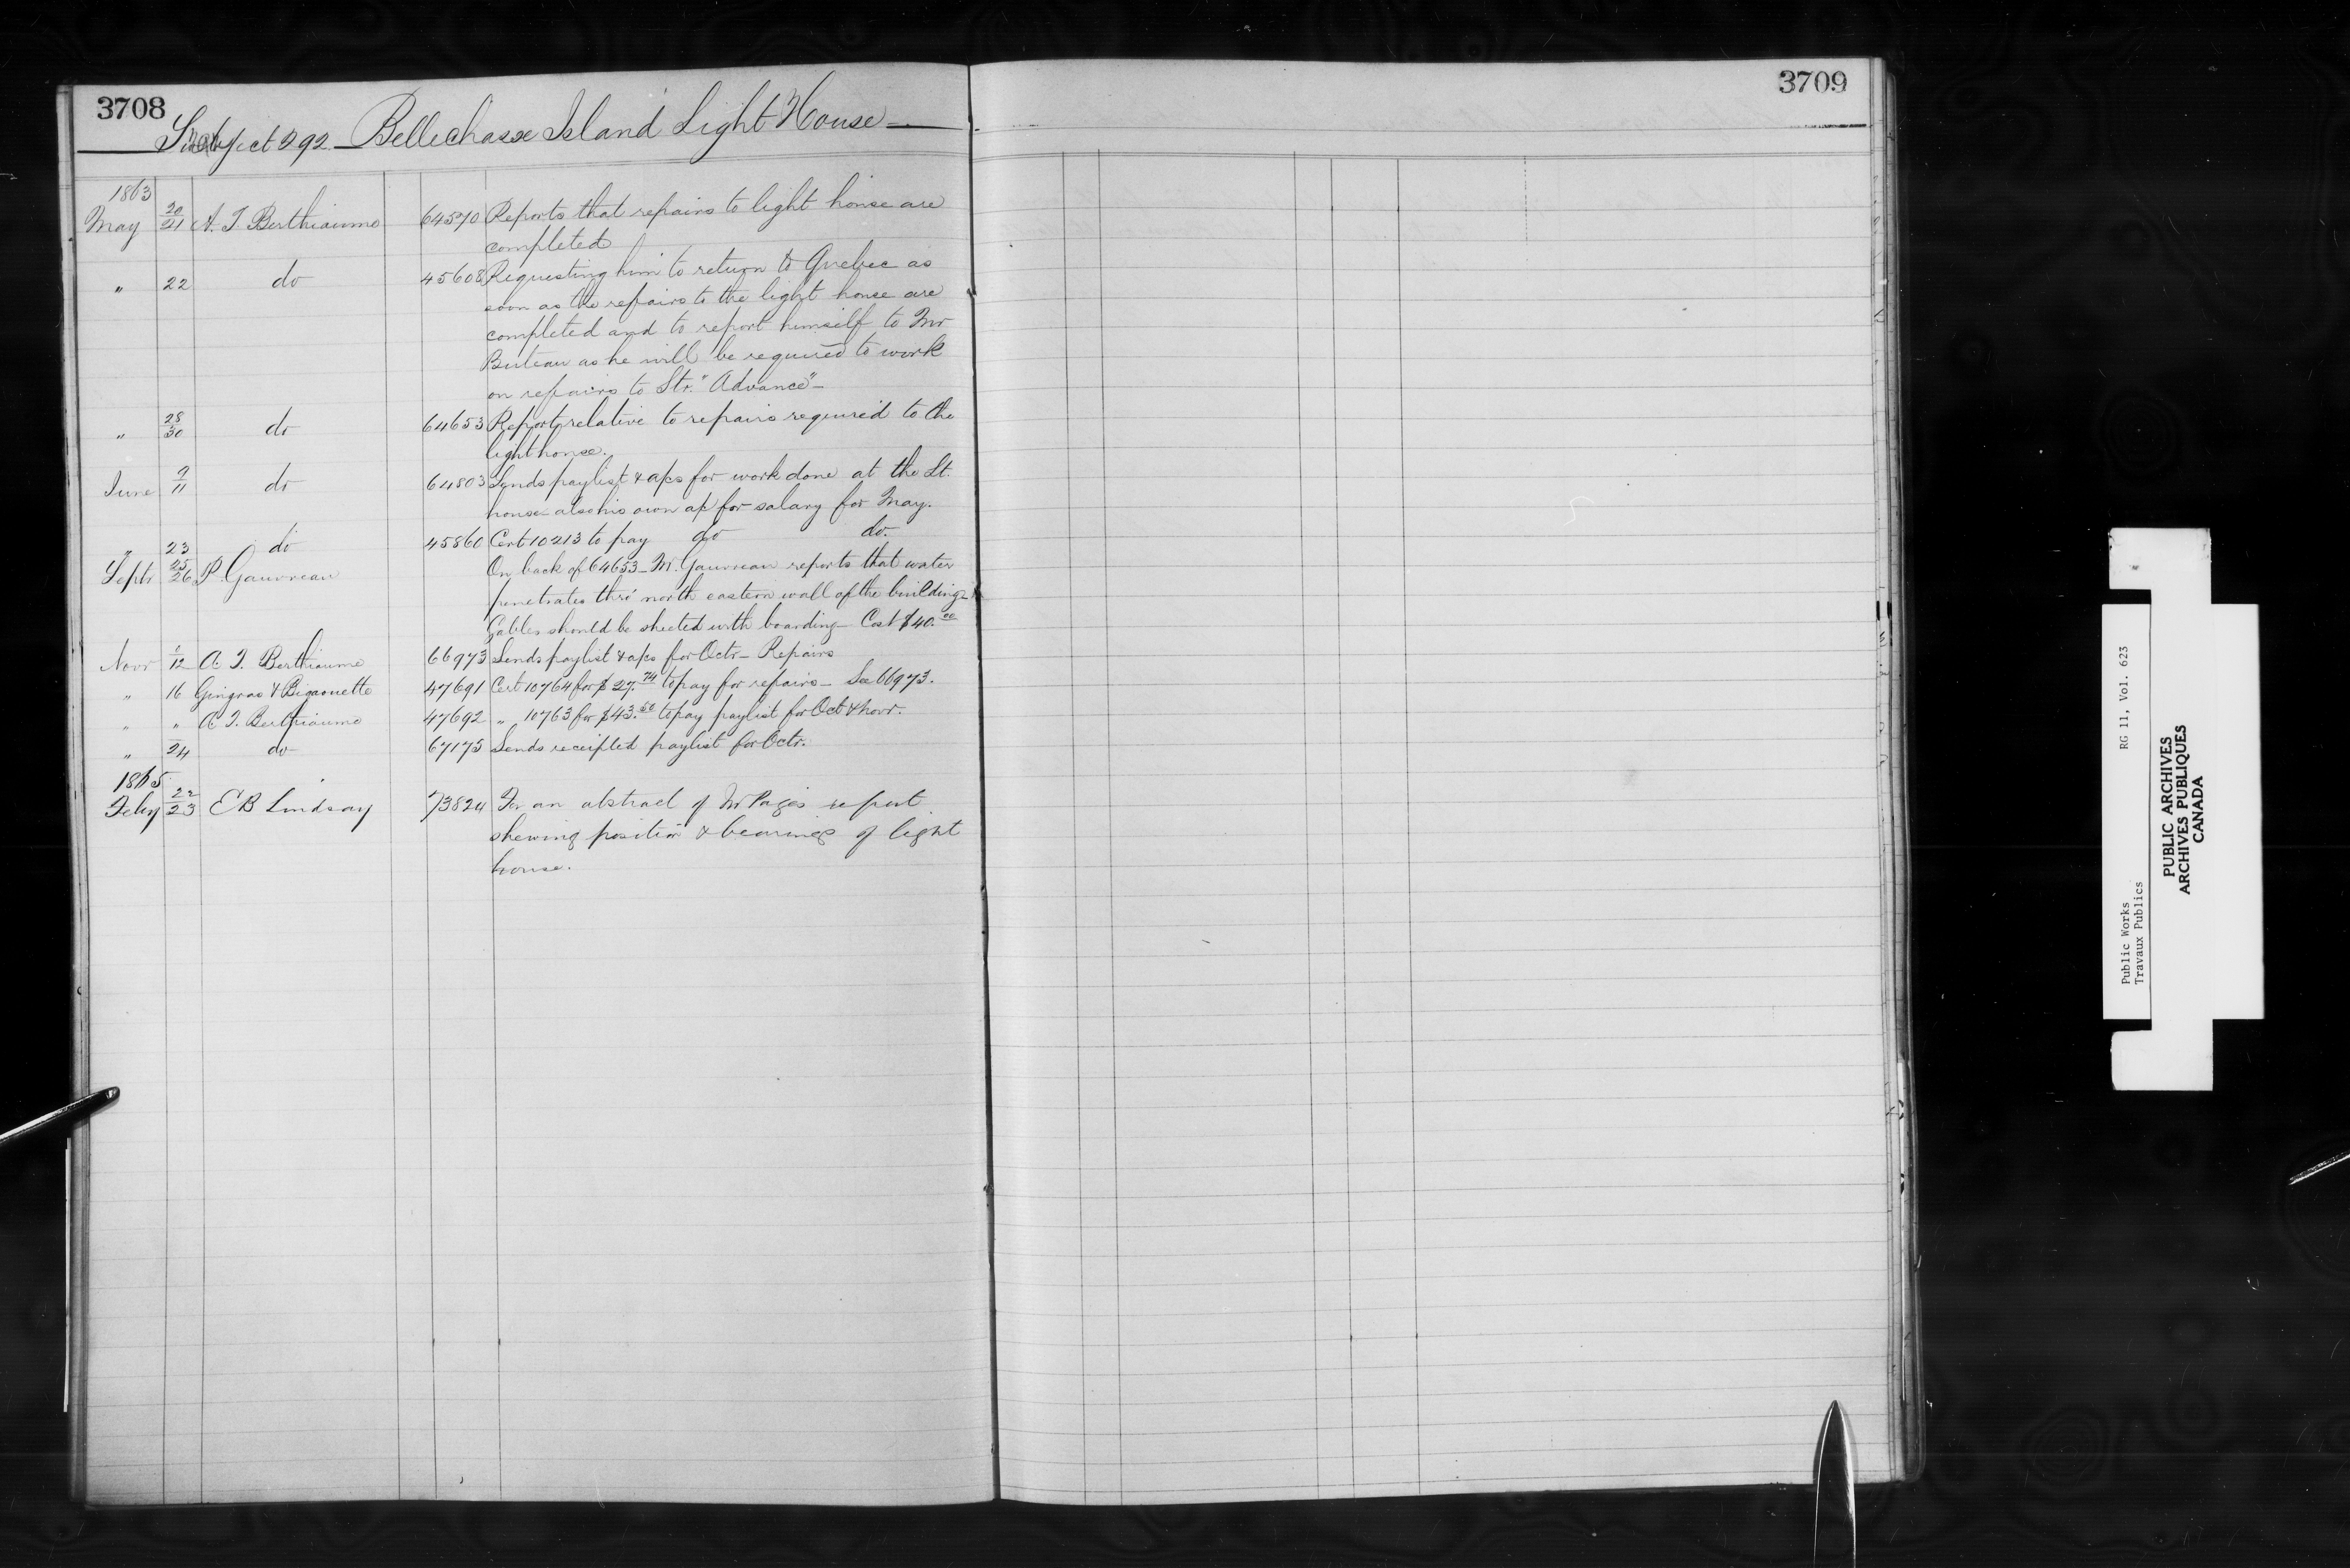 3708
3709
Subject 292 — Bellechasse Island Light House —
1863
May 20/21 A. T. Berthiaume 64570 Reports that repairs to light house are
completed
" 22 do 45608 Requesting him to return to Quebec as
soon as the repairs to the light house are
completed and to report himself to Mr
Buteau as he will be required to work
on repairs to Str. "Advance" —
" 28/30 do 64653 Report relative to repairs required to the
light house.
June 9/11 do 64803 Sends paylist & a/cs for work done at the Lt.
house also his own a/c for salary for May.
" 23 do 45860 Cert 10213 to pay do do.
Septr 25/26 P. Gauvreau On back of 64653 — Mr. Gauvreau reports that water
penetrates thro' north eastern wall of the building —
Gables should be sheeted with boarding — Cost $40.00
Novr /12 A T. Berthiaume 66973 Sends paylist & a/cs for Octr — Repairs
" 16 Gingras & Bigaouette 47691 Cert 10764 for $27.74 to pay for repairs — See 66973.
" " A T. Berthiaume 47692 " 10763 for $43.50 to pay paylist for Oct & Novr.
" 24 do 67175 Sends receipted paylist for Octr.
1865
Feby 22/23 E B Lindsay 73824 For an abstract of Mr Page's report
shewing position & bearings of light
house.
Public Works RG 11, Vol. 623
Travaux Publics
PUBLIC ARCHIVES
ARCHIVES PUBLIQUES
CANADA